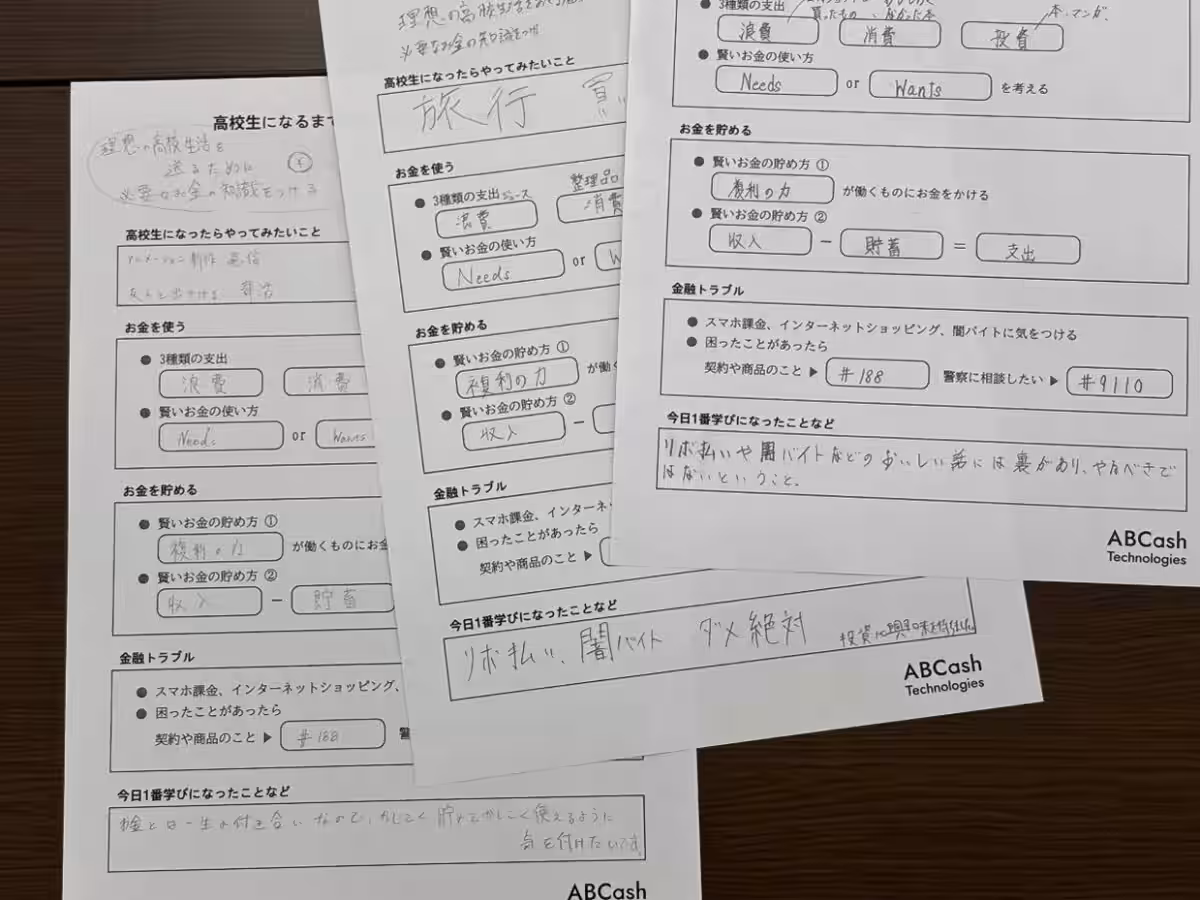 高校生になるまで
理想の高校生活を
送るために
必要なお金の知識をつける
高校生になったらやってみたいこと
アニメーション制作
友人と出かける 部活
お金を使う
● 3種類の支出
浪費 消費
● 賢いお金の使い方
Needs or Wants
お金を貯める
● 賢いお金の貯め方 ①
複利の力 が働くものにお金
● 賢いお金の貯め方 ②
収入 − 貯蓄
金融トラブル
● スマホ課金、インターネットショッピング、
● 困ったことがあったら
契約や商品のこと ▶ #188 警
今日1番学びになったことなど
お金とは一生の付き合いなので、かしこく貯めてかしこく使えるように
気を付けたいです。
ABCash
理想の高校生活を
必要なお金の知識をつけ
高校生になったらやってみたいこと
旅行 買い
お金を使う
● 3種類の支出 ジュース 整理品
浪費 消費
● 賢いお金の使い方
Needs or W
お金を貯める
● 賢いお金の貯め方 ①
複利の力 が働く
● 賢いお金の貯め方 ②
収入 −
金融トラブル
● スマホ課金、インターネ
● 困ったことがあったら
契約や商品のこと ▶
今日1番学びになったことなど
リボ払い、闇バイト ダメ絶対 投資に興味を持ちました
ABCash
Technologies
● 3種類の支出 買ったもの 本・マンガ
浪費 消費 投資
● 賢いお金の使い方
Needs or Wants を考える
お金を貯める
● 賢いお金の貯め方 ①
複利の力 が働くものにお金をかける
● 賢いお金の貯め方 ②
収入 − 貯蓄 = 支出
金融トラブル
● スマホ課金、インターネットショッピング、闇バイトに気をつける
● 困ったことがあったら
契約や商品のこと ▶ #188 警察に相談したい ▶ #9110
今日1番学びになったことなど
リボ払いや闇バイトなどのおいしい話には裏があり、やるべきで
はないということ。
ABCash
Technologies